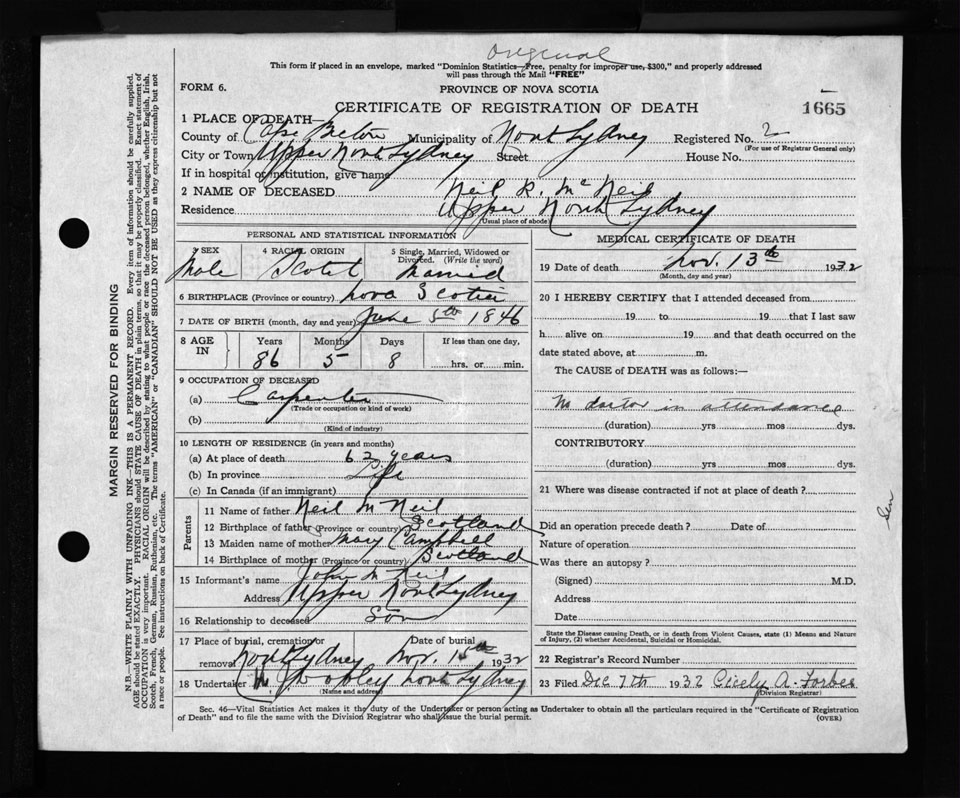 Original
This form if placed in an envelope, marked "Dominion Statistics—Free, penalty for improper use, $300," and properly addressed
will pass through the Mail "FREE"
FORM 6.
PROVINCE OF NOVA SCOTIA
CERTIFICATE OF REGISTRATION OF DEATH
1665
1 PLACE OF DEATH—
County of Cape Breton Municipality of North Sydney Registered No. 2
(For use of Registrar General only)
City or Town Upper North Sydney Street House No.
If in hospital or institution, give name
2 NAME OF DECEASED Neil R. McNeil
Residence Upper North Sydney
(Usual place of abode)
PERSONAL AND STATISTICAL INFORMATION
3 SEX 4 RACIAL ORIGIN 5 Single, Married, Widowed or Divorced. (Write the word)
Male Scotch Married
6 BIRTHPLACE (Province or country) Nova Scotia
7 DATE OF BIRTH (month, day and year) June 5th 1846
8 AGE IN Years Months Days If less than one day,
86 5 8 hrs. or min.
9 OCCUPATION OF DECEASED
(a) Carpenter
(Trade or occupation or kind of work)
(b)
(Kind of industry)
10 LENGTH OF RESIDENCE (in years and months)
(a) At place of death 62 years
(b) In province Life
(c) In Canada (if an immigrant)
Parents
11 Name of father Neil McNeil
12 Birthplace of father (Province or country) Scotland
13 Maiden name of mother Mary Campbell
14 Birthplace of mother (Province or country) Scotland
15 Informant's name John McNeil
Address Upper North Sydney
16 Relationship to deceased Son
17 Place of burial, cremation or removal North Sydney Date of burial Nov. 15th 1932
18 Undertaker North Sydney
(Name and address)
MEDICAL CERTIFICATE OF DEATH
19 Date of death Nov. 13th 1932
(Month, day and year)
20 I HEREBY CERTIFY that I attended deceased from
19 to 19 that I last saw
h alive on 19 and that death occurred on the
date stated above, at m.
The CAUSE of DEATH was as follows:—
No doctor in attendance
(duration) yrs mos dys.
CONTRIBUTORY
(duration) yrs mos dys.
21 Where was disease contracted if not at place of death?
Sen
Did an operation precede death? Date of
Nature of operation
Was there an autopsy?
(Signed) M.D.
Address
Date
State the Disease causing Death, or in death from Violent Causes, state (1) Means and Nature
of Injury, (2) whether Accidental, Suicidal or Homicidal.
22 Registrar's Record Number
23 Filed Dec 7th 1932 Cicely A. Forbes
(Division Registrar)
Sec. 46—Vital Statistics Act makes it the duty of the Undertaker or person acting as Undertaker to obtain all the particulars required in the "Certificate of Registration
of Death" and to file the same with the Division Registrar who shall issue the burial permit.
(OVER)
MARGIN RESERVED FOR BINDING
N.B.—WRITE PLAINLY WITH UNFADING INK—THIS IS A PERMANENT RECORD. Every item of information should be carefully supplied.
AGE should be stated EXACTLY. PHYSICIANS should STATE CAUSE OF DEATH in plain terms, so that it may be properly classified. Exact statement of
OCCUPATION is very important. RACIAL ORIGIN will be described by stating to what people or race the deceased person belonged, whether English, Irish,
Scotch, French, German, Russian, Ruthenian, etc. The terms "AMERICAN" or "CANADIAN" SHOULD NOT BE USED as they express citizenship but not
a race or people. See instructions on back of Certificate.